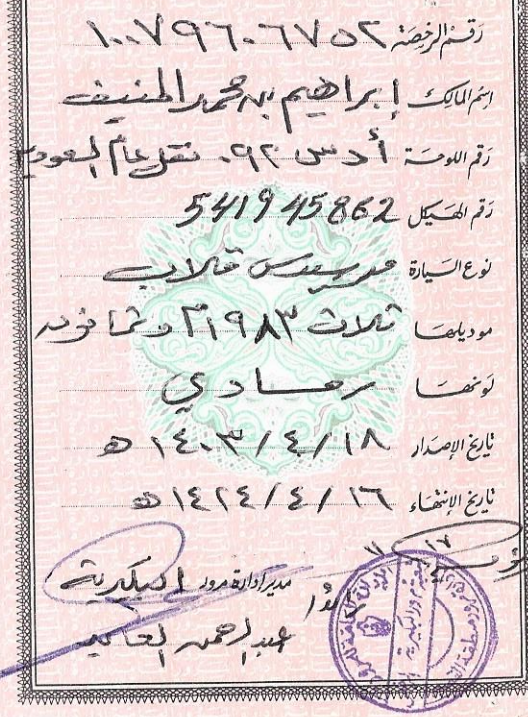 رقم الرخصة ١٠٠٧٩٦٠٦٧٥٢
اسم المالك إبراهيم بن محمد المنيف
رقم اللوحة أ د س ٠٩٢ نقل عام السعودية
رقم الهيكل 541945862
نوع السيارة مرسيدس قلاب
موديلها ١٩٨٣م ثلاث وثمانون
لونها رمادي
تاريخ الإصدار ١٤٠٣/٤/١٨ هـ
تاريخ الإنتهاء ١٤٢٤/٤/١٦ هـ
مدير إدارة مرور البكيرية
عبد الرحمن